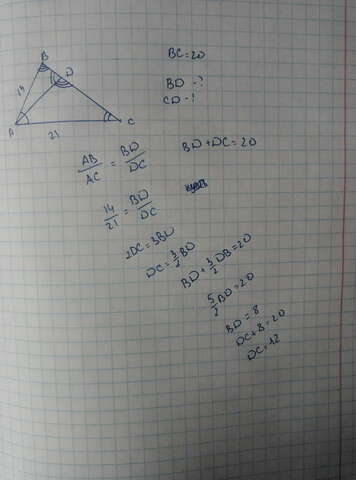 B
D
14
A
21
C
BC=20
BD-?
CD-?
AB/AC = BD/DC
BD+DC=20
14/21 = BD/DC
2DC=3BD
DC=3/2BD
BD+3/2DB=20
5/2BD=20
BD=8
DC+8=20
DC=12